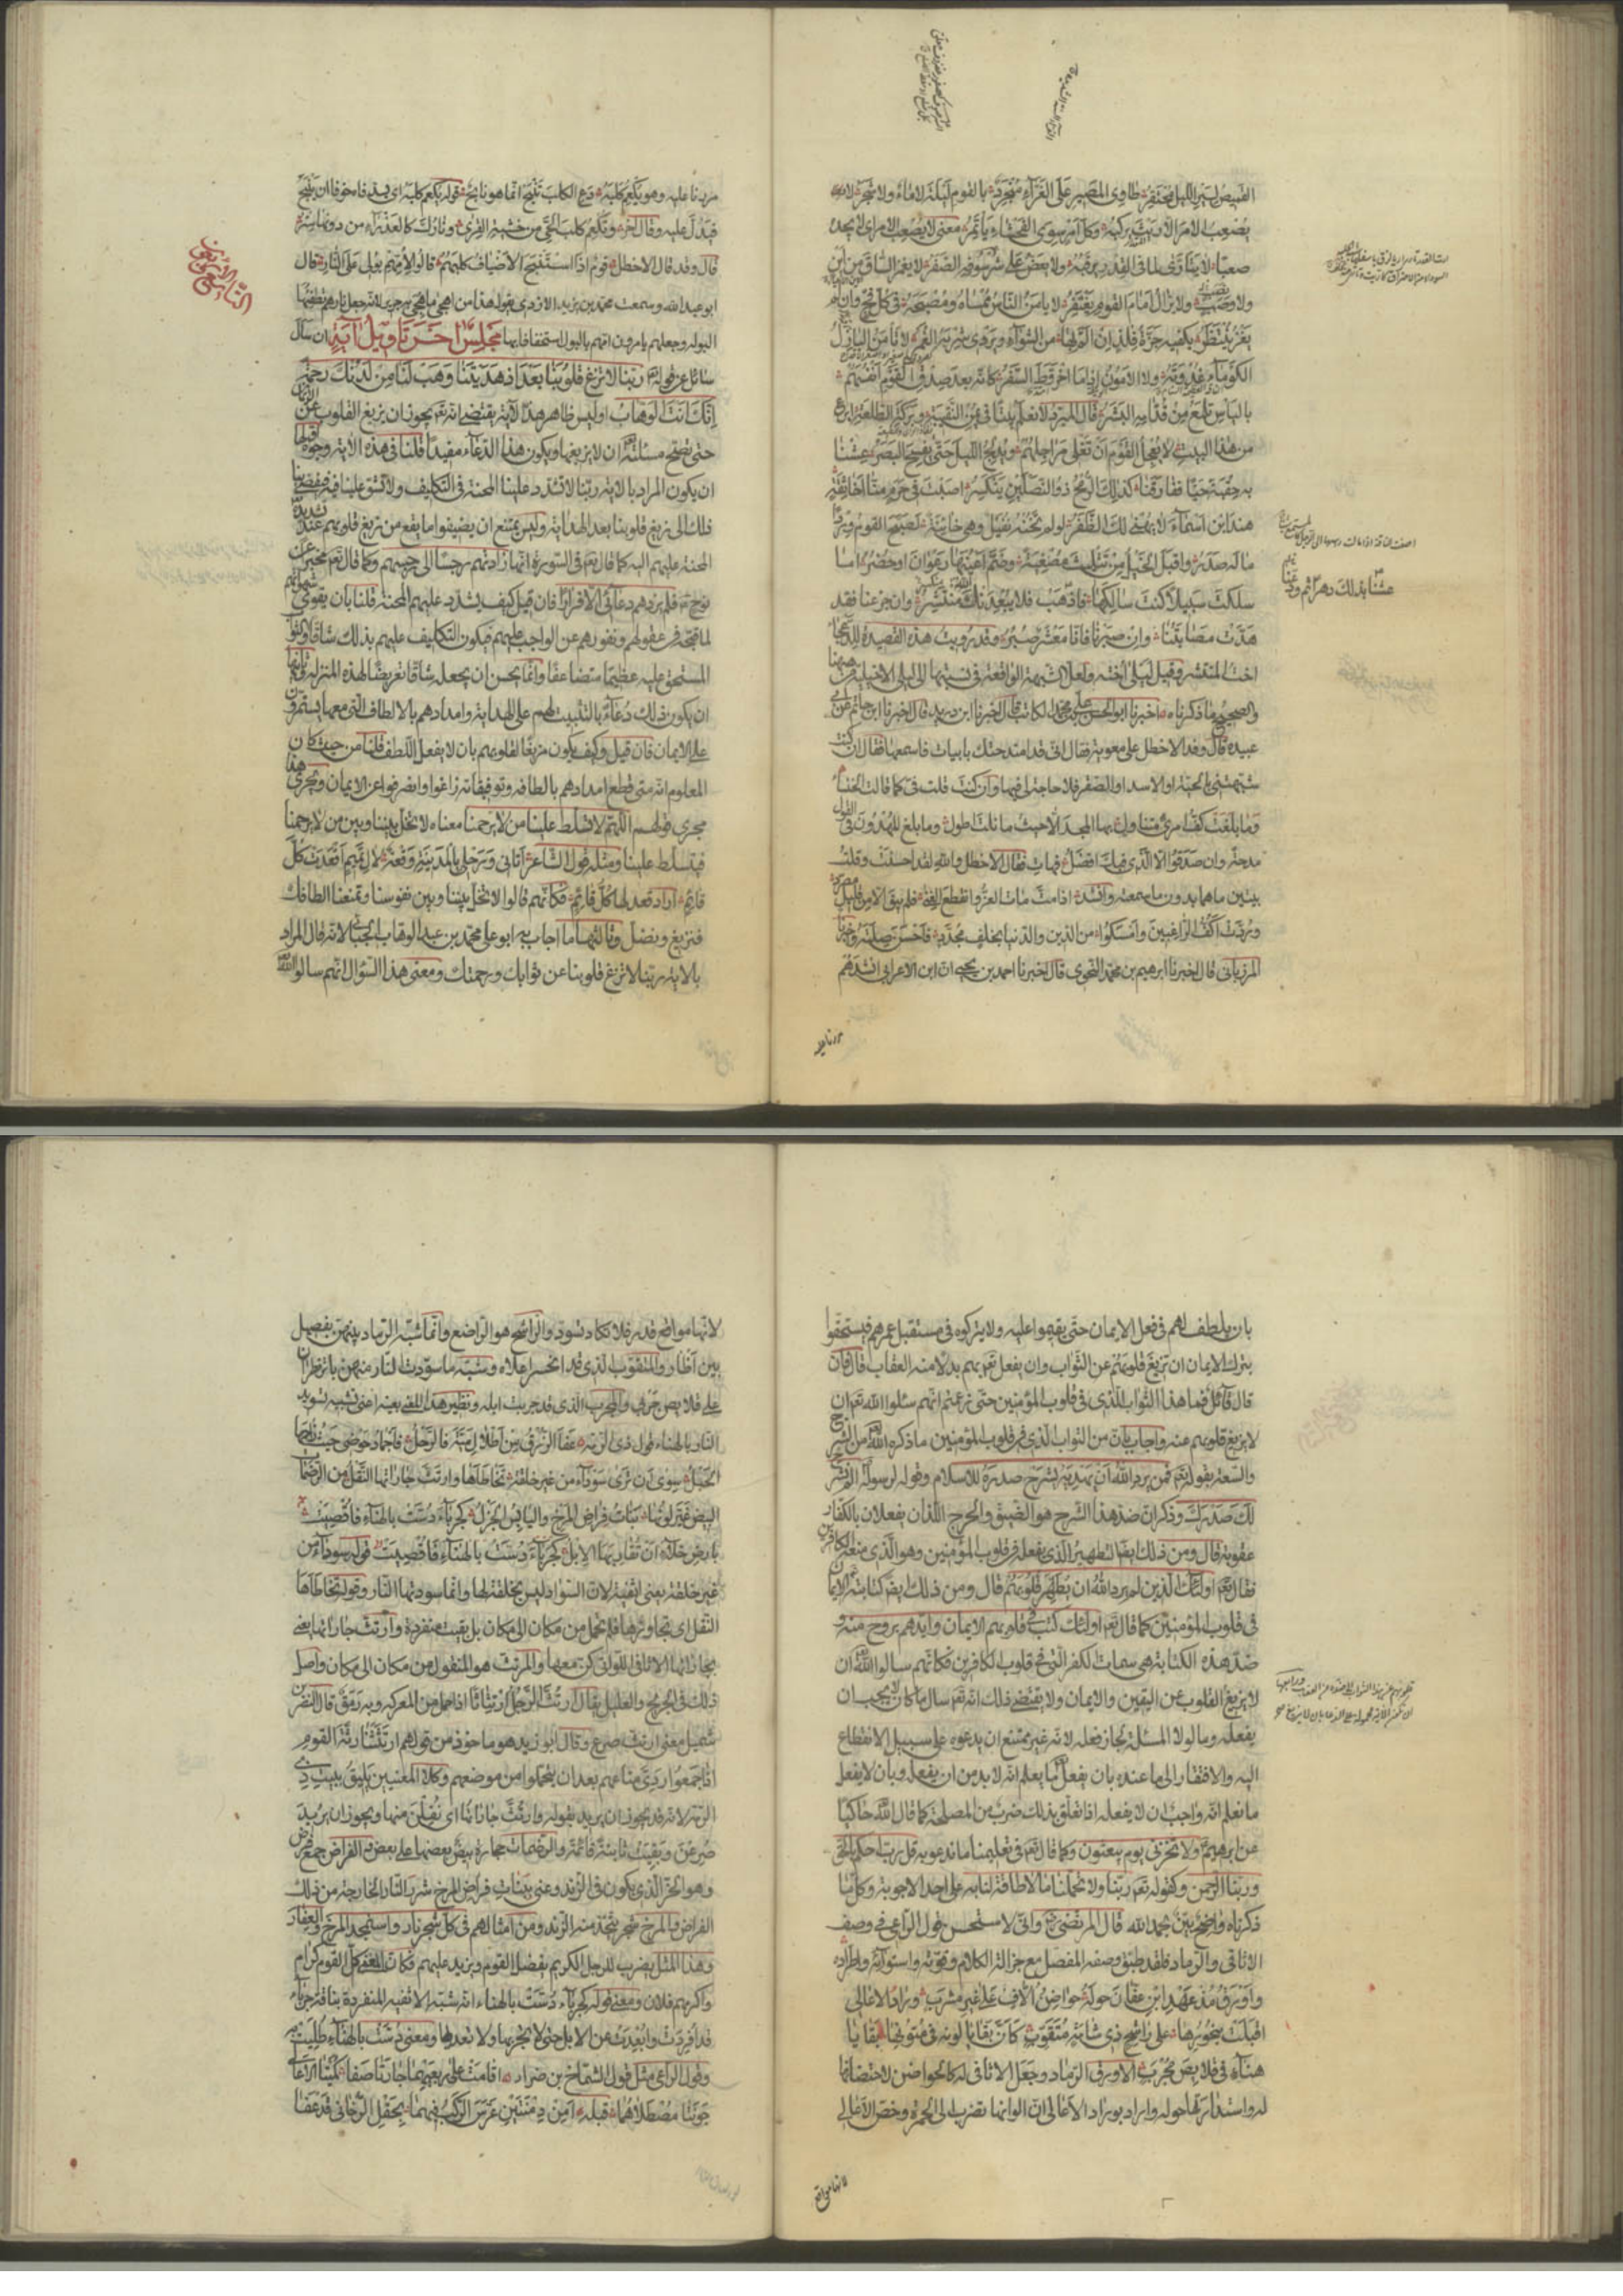 القميص لسير الليل محتقر طاوي المصير على العزاء منجرد بالقوم ليلة لا ماء ولا شجر لا
يصعب الامر الا ريث يركبه وكل امر سوى الفحشاء يأتمر معنى لا يصعب الامر اي لا يجده
صعبا لا يتأرى لما في القدر يرقبه ولا يعض على شرسوفه الصفر لا يغمز الساق من اين
ولا وصب ولا يزال امام القوم يقتفر لا يأمن الناس ممساه ومصبحه في كل فج وان لم
يغز ينتظر تكفيه حزة فلذ ان الم بها من الشواء ويروي شربه الغمر لا تأمن البازل
الكوماء عدوته ولا الامون اذا ما اخروط السفر كانه بعد صدق القوم انفسهم
بالياس تلمع من قدامه البشر قال المبرد لا نعلم بيتا في يمن النقيبة وبركة الطلعة ابرع
من هذا البيت لا يعجل القوم ان تغلي مراجلهم ويدلج الليل حتى يفسح البصر عشنا
به حقبة حيا ففارقنا كذلك الرمح ذو النصلين ينكسر اصبت في حرم منا اخا ثقة
هند ابن اسماء لا يهنئ لك الظفر لو لم تخنه نفيل وهي خائنة لصبح القوم وردا
ما له صدر واقبل الخيل من تثليث مصغية وضم اعينها رغوان او حضر اما
سلكت سبيلا كنت سالكها فاذهب فلا يبعدنك الله منتشر وان جزعنا فقد
هدت مصابتنا وان صبرنا فانا معشر صبر وقد رويت هذه القصيدة للدعجاء
اخت المنتشر وقيل لليلى اخته ولعل الشبهة الواقعة في نسبتها الى ليلى الاخيلية من هيهنا
والصحيح ما ذكرناه اخبرنا ابو الحسن علي بن محمد الكاتب قال اخبرنا ابن دريد قال اخبرنا ابو حاتم عن ابي
عبيدة قال وفد الاخطل على معوية فقال اني قد امتدحتك بابيات فاسمعها فقال ان كنت
شبهتني بالحية او الاسد او الصقر فلا حاجة لي فيها وان كنت قلت في كما قالت الخنساء
وما بلغت كف امرئ متناول بها المجد الا حيث ما نلت اطول وما بلغ المهدون في القول
مدحة وان صدقوا الا الذي فيك افضل فهات فقال الاخطل والله لقد احسنت وقلت
بيتين ما هما بدون ما سمعته وانشد اذا مت مات العرف وانقطع الغنى فلم يبق الا من قليل مصرد
وردت اكف الراغبين وامسكوا من الدين والدنيا بخلف مجدد فاحسن صلته واخبرنا
المرزباني قال اخبرنا ابرهيم بن محمد النحوي قال اخبرنا احمد بن يحيى ان ابن الاعرابي انشدهم
مررنا عليه
عشنا بذلك دهرا ثم ودعنا
مررنا عليه وهو يكعم كلبه دع الكلب ينبح انما هو نابح قوله يكعم كلبه اي يشد فاه خوفا ان ينبح
فيدل عليه وقال اخر وتكعم كلب الحي من خشية القرى ونارك كالعذراء من دونها ستر
قال وقد قال الاخطل قوم اذا استنبح الاضياف كلبهم قالوا لامهم بولي على النار قال
ابو عبد الله وسمعت محمد بن يزيد الازدي يقول هذا من اهجى ما هجي به جرير لانه جعل نارهم تطفئها
البولة وجعلهم يامرون امهم بالبول استخفافا بها مجلس اخر تأويل اية ان سال
سائل عن قوله تع ربنا لا تزغ قلوبنا بعد اذ هديتنا وهب لنا من لدنك رحمة
انك انت الوهاب اوليس ظاهر هذه الاية يقتضي انه تع يجوز ان يزيغ القلوب عن الايمان
حتى تصح مسئلته ان لا يزيغها ويكون هذا الدعاء مفيدا قلنا في هذه الاية وجوه اولها
ان يكون المراد بالاية ربنا لا تشدد علينا المحنة في التكليف ولا تشق علينا فيه فيفضي بنا
ذلك الى زيغ قلوبنا بعد الهداية وليس يمتنع ان يضيفوا ما يقع من زيغ قلوبهم عند تشديد
المحنة عليهم اليه كما قال تع في السورة انها زادتهم رجسا الى رجسهم وكما قال تع مخبرا عن
نوح ع فلم يزدهم دعائي الا فرارا فان قيل كيف يشدد عليهم المحنة قلنا بان يقوي شهواتهم
لما قبحه في عقولهم ونفورهم عن الواجب عليهم فيكون التكليف عليهم بذلك شاقا والثواب
المستحق عليه عظيما متضاعفا وانما يحسن ان يجعله شاقا تعريضا لهذه المنزلة وثانيها
ان يكون ذلك دعاء بالتثبيت لهم على الهداية وامدادهم بالالطاف التي معها يستمرون
على الايمان فان قيل وكيف يكون مزيغا لقلوبهم بان لا يفعل اللطف قلنا من حيث كان
المعلوم انه متى قطع امدادهم بالطافه وتوفيقاته زاغوا وانصرفوا عن الايمان ويجري هذا
مجرى قولهم اللهم لا تسلط علينا من لا يرحمنا معناه لا تخل بيننا وبين من لا يرحمنا
فيتسلط علينا ومثله قول الشاعر اتاني ورحلي بالمدينة وقعة لآل تميم اقعدت كل
قائم اراد قعد لها كل قائم فكانهم قالوا لا تخل بيننا وبين نفوسنا وتمنعنا الطافك
فنزيغ ونضل وثالثها ما اجاب به ابو علي محمد بن عبد الوهاب الجبائي لانه قال المراد
بالاية ربنا لا تزغ قلوبنا عن ثوابك ورحمتك ومعنى هذا السؤال انهم سالوا الله
بان يلطف لهم في فعل الايمان حتى يقيموا عليه ولا يتركوه في مستقبل عمرهم فيستحقوا
بترك الايمان ان تزيغ قلوبهم عن الثواب وان يفعل تع بهم بدلا منه العقاب قال فان
قال قائل فما هذا الثواب الذي في قلوب المؤمنين حتى زعمتم انهم سئلوا الله تع ان
لا يزيغ قلوبهم عنه واجاب بان من الثواب الذي في قلوب المؤمنين ما ذكره الله من الشرح
والسعة بقوله تع فمن يرد الله ان يهديه يشرح صدره للاسلام وقوله لرسوله الم نشرح
لك صدرك وذكر ان ضد هذا الشرح هو الضيق والحرج اللذان يفعلان بالكفار
عقوبة قال ومن ذلك ايضا التطهير الذي يفعله في قلوب المؤمنين وهو الذي منعه الكافرين
فقال تع اولئك الذين لم يرد الله ان يطهر قلوبهم قال ومن ذلك ايضا كتابته الايمان
في قلوب المؤمنين كما قال تع اولئك كتب في قلوبهم الايمان وايدهم بروح منه و
ضد هذه الكتابة هي سمات الكفر التي في قلوب الكافرين فكانهم سالوا الله ان
لا يزيغ القلوب عن اليقين والايمان ولا يقتضي ذلك انه تع سال ما كان لا يجب ان
يفعله وما لولا المسئلة لجاز فعله لانه غير ممتنع ان يدعوه على سبيل الانقطاع
اليه والافتقار الى ما عنده بان يفعل ما يعلم انه لا بد من ان يفعله وبان لا يفعل
ما نعلم انه واجب ان لا يفعله اذا تعلق بذلك ضرب من المصلحة كما قال الله حاكيا
عن ابرهيم ولا تخزني يوم يبعثون وكما قال تع في تعليمنا ما ندعو به قل رب احكم بالحق
وربنا الرحمن وكقوله تع ربنا ولا تحملنا ما لا طاقة لنا به على احد الاجوبة وكل ما
ذكرناه واضح بين بحمد الله قال المرتضى واني لاستحسن قول الراعي في وصف
الاثافي والرماد فلقد طبق وصفه المفصل مع جزالة الكلام وقوته واستوائه واطراده
واورق مذ عهد ابن عفان حوله حواضن الاف على غير مشرب وراد الاعالي
اقبلت بنحورها على راشح ذي شامة متقوب كان بقايا لونه في متونها بقايا
هناء في قلائص مجرب الاورق الرماد وجعل الاثافي له كالحواضن لاحتضانها
له واستدارتها حوله واراد بوراد الاعالي ان الوانها تضرب الى الحمرة وخص الاعالي
لانها مواقع
لانها مواضع قدر فلا تكاد تسود والراشح هو الراضع وانما شبه الرماد بينهن بفصيل
بين اظار والمتقوب الذي قد انحسر اعلاه وشبه ما سودت النار منهن باثر قطران
على قلائص جربى والمجرب الذي قد جربت ابله ونظير هذا المعنى بعينه اعني تشبيه تسويد
النار بالهناء قول ذي الرمة عفا الزرق من اطلال مية فالدحل فاجماد حوضى حيث زاحمها
الحبل سوى ان ترى سوداء من غير خلقة تخاطاها وارتث جاراتها النقل من الرضمات
البيض غير لونها بنات فراض المرخ واليابس الجزل كجرباء دست بالهناء فافصيت
بارض خلاء ان تقاربها الابل كجرباء دست بالهناء فافصيت قوله سوداء من
غير خلقة يعني اثفية لان السواد ليس بخلقة لها وانما سودتها النار وقوله تخاطاها
النقل اي تجاوزها فلم تحمل من مكان الى مكان بل بقيت منفردة وارتث جاراتها يعني
بجاراتها الاثافي اللواتي كن معها والمرتث هو المنقول من مكان الى مكان واصل
ذلك في الجريح والعليل يقال ارتث الرجل ارتثاثا اذا حمل من المعركة وبه رمق قال النضر بن
شميل معنى ارتث صرع وقال ابو زيد هو ماخوذ من قولهم ارتثثنا رثة القوم
اذا جمعوا ردي متاعهم بعد ان يتحملوا من موضعهم وكلا المعنيين يليق ببيت ذي
الرمة لانه قد يجوز ان يريد بقوله وارتث جاراتها اي نقلن منها ويجوز ان يريد
صرعن وبقيت ثابتة قائمة والرضمات حجارة بيض بعضها على بعض والفراض جمع فرض
وهو الحز الذي يكون في الزند وعنى ببنات فراض المرخ شرر النار الخارجة من ذلك
الفراض والمرخ شجر يتخذ منه الزند ومن امثالهم في كل شجر نار واستمجد المرخ والعفار
وهذا المثل يضرب للرجل الكريم يفضل القوم ويزيد عليهم فكان المعنى كل القوم كرام
واكرمهم فلان ومعنى قوله كجرباء دست بالهناء انه شبه الاثفية المنفردة بناقة جرباء
قد افردت وابعدت عن الابل حتى لا تجربها ولا تعديها ومعنى دست بالهناء طليت به
وقول الراعي مثل قول الشماخ بن ضرار اقامت على ربعيهما جارتا صفا كميتا الاعالي
جونتا مصطلاهما قبله امن دمنتين عرس الركب فيهما بحقل الرخامى قد عفا